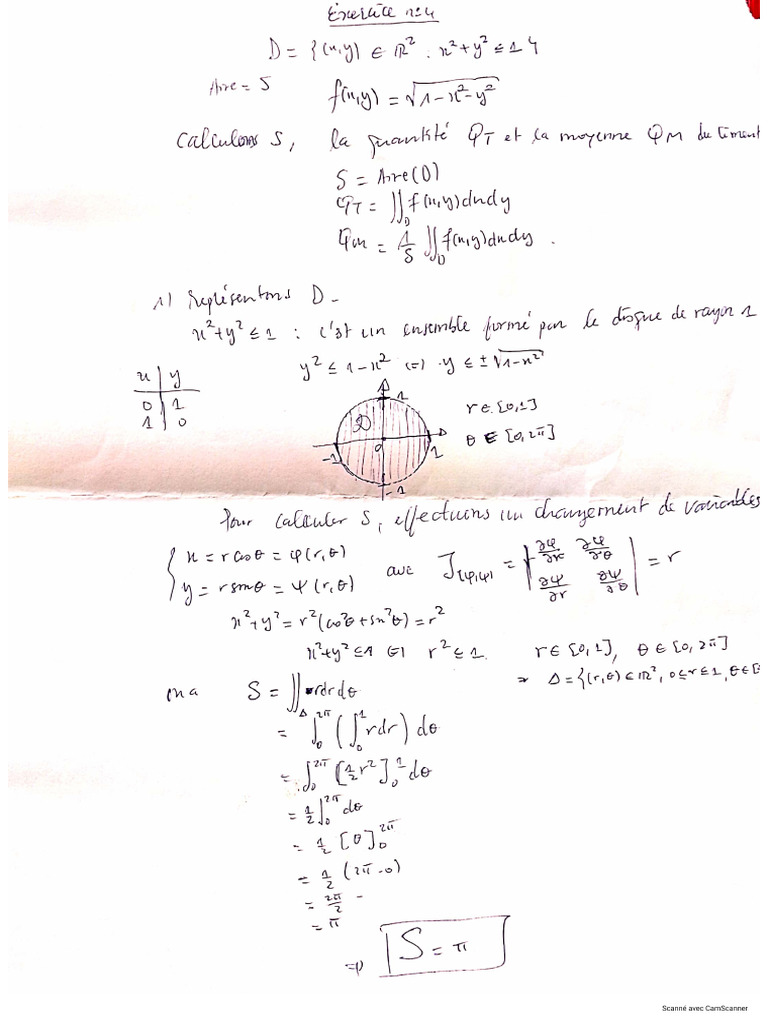 Exercice n°4
D = {(x,y) ∈ ℝ² . x²+y² ≤ 1}
Aire = S
f(x,y) = √(1-x²-y²)
Calculons S, la quantité Q_T et la moyenne Q_M du ciment
S = Aire(D)
Q_T = ∬_D f(x,y)dxdy
Q_M = 1/S ∬_D f(x,y)dxdy.
1) Représentons D -
x²+y² ≤ 1 : c'est un ensemble formé par le disque de rayon 1
y² ≤ 1-x² (=) y ≤ ±√(1-x²)
x | y
0 | 1
1 | 0
1
D
0
-1
1
-1
r ∈ [0,1]
θ ∈ [0,2π]
Pour calculer S, effectuons un changement de variables
{ x = r cosθ = φ(r,θ)
y = r sinθ = ψ(r,θ)
avec J_(φ,ψ) = | ∂φ/∂r ∂φ/∂θ
∂ψ/∂r ∂ψ/∂θ | = r
x²+y² = r²(cos²θ+sin²θ) = r²
x²+y² ≤ 1 (=) r² ≤ 1. r ∈ [0,1], θ ∈ [0,2π]
⇒ Δ = {(r,θ) ∈ ℝ², 0≤r≤1, θ∈[
on a S = ∬_Δ rdrdθ
= ∫_0^2π (∫_0^1 rdr) dθ
= ∫_0^2π [1/2 r²]_0^1 dθ
= 1/2 ∫_0^2π dθ
= 1/2 [θ]_0^2π
= 1/2 (2π-0)
= 2π/2
= π
⇒ S = π
Scanné avec CamScanner